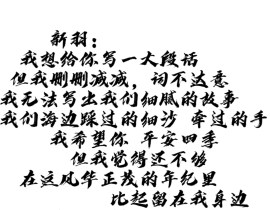 新羽：
我想给你写一大段话
但我删删减减，词不达意
我无法写出我们细腻的故事
我们海边踩过的细沙 牵过的手
我希望你 平安四季
但我觉得还不够
在这风华正茂的年纪里
比起留在我身边